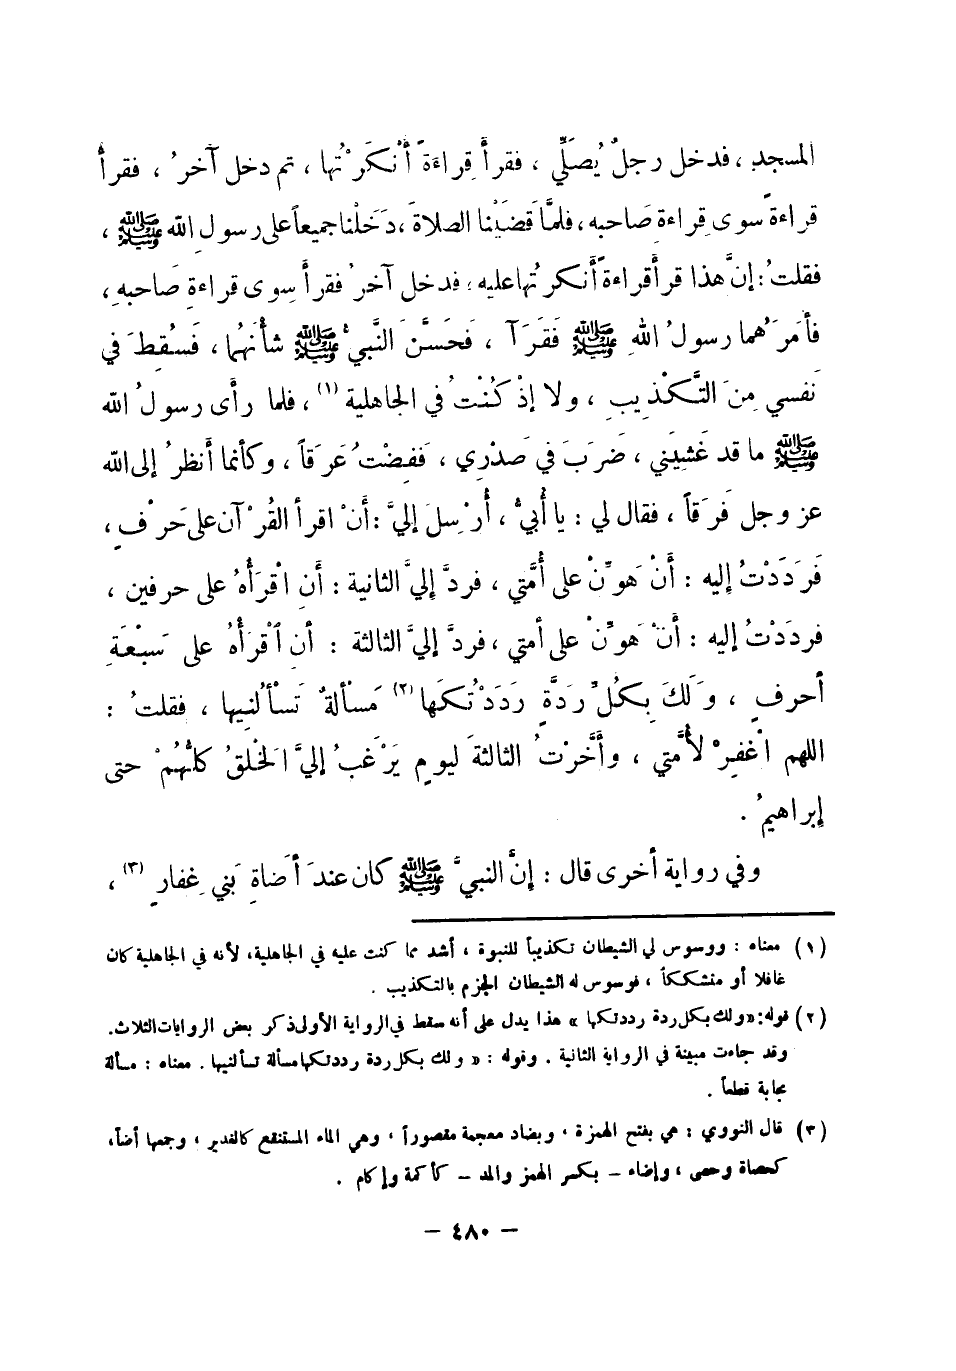 المسجد ، فدخل رجلٌ يُصَلِّي ، فقرأ قِراءَةً أَنْكَرْتُها ، ثم دخل آخرُ ، فقرأ
قراءةً سوى قِراءةِ صَاحبِهِ ، فلمَّا قَضَيْنا الصلاةَ ، دَخَلْنا جميعاً على رسولِ الله ﷺ ،
فقلتُ : إنَّ هذا قرأ قراءةً أَنكرتُها عليه ؛ فدخل آخرُ فقرأ سِوى قراءةِ صَاحبهِ ،
فأَمَرَهُما رسولُ اللهِ ﷺ فَقَرَآ ، فَحَسَّنَ النَّبيُّ ﷺ شأْنَهُما ، فَسُقِطَ في
نَفسي مِنَ التَّكْذِيبِ ، ولا إذْ كُنْتُ في الجاهلية (١) ، فلما رأى رسولُ الله
ﷺ ما قد غَشِيَني ، ضَرَبَ في صَدْرِي ، فَفِضْتُ عَرَقاً ، وكأنما أَنظرُ إلى الله
عز وجل فَرَقاً ، فقال لي : يا أُبيُّ ، أُرْسِلَ إليَّ : أَنْ اقرأ القُرْآن على حَرْفٍ ،
فَرَدَدْتُ إليه : أَنْ هَوِّنْ على أُمَّتي ، فردَّ إليَّ الثانية : أَنِ اقْرَأْهُ على حرفين ،
فرددْتُ إليه : أَنْ هَوِّنْ على أمتي ، فردَّ إليَّ الثالثة : أنِ ٱقْرَأْهُ على سَبْعَةِ
أحرفٍ ، وَلَكَ بِكُلِّ رَدَّةٍ رَدَدْتُكَها (٢) مَسْأَلةٌ تَسأَلُنِيها ، فقلتُ :
اللهم اغْفِرْ لأُمَّتي ، وأَخَّرْتُ الثالثةَ ليومٍ يَرْغَبُ إليَّ الخَلقُ كلُّهُمْ حتى
إبراهيمُ .
وفي رواية أخرى قال : إنَّ النبيَّ ﷺ كان عندَ أَضَاةِ بَني غِفارٍ (٣) ،
(١) معناه : ووسوس لي الشيطان تكذيباً للنبوة ، أشد مما كنت عليه في الجاهلية ، لأنه في الجاهلية كان
غافلا أو متشككاً ، فوسوس له الشيطان الجزم بالتكذيب .
(٢) قوله : « ولك بكل ردة رددتكها » هذا يدل على أنه سقط في الرواية الأولى ذكر بعض الروايات الثلاث .
وقد جاءت مبينة في الرواية الثانية . وقوله : « ولك بكل ردة رددتكها مسألة تسألنيها . معناه : مسألة
مجابة قطعاً .
(٣) قال النووي : هي بفتح الهمزة ، وبضاد معجمة مقصوراً ، وهي الماء المستنقع كالغدير ، وجمعها أضاً ،
كحصاة وحصى ، وإضاء – بكسر الهمز والمد – كأكمة وإكام .
– ٤٨٠ –